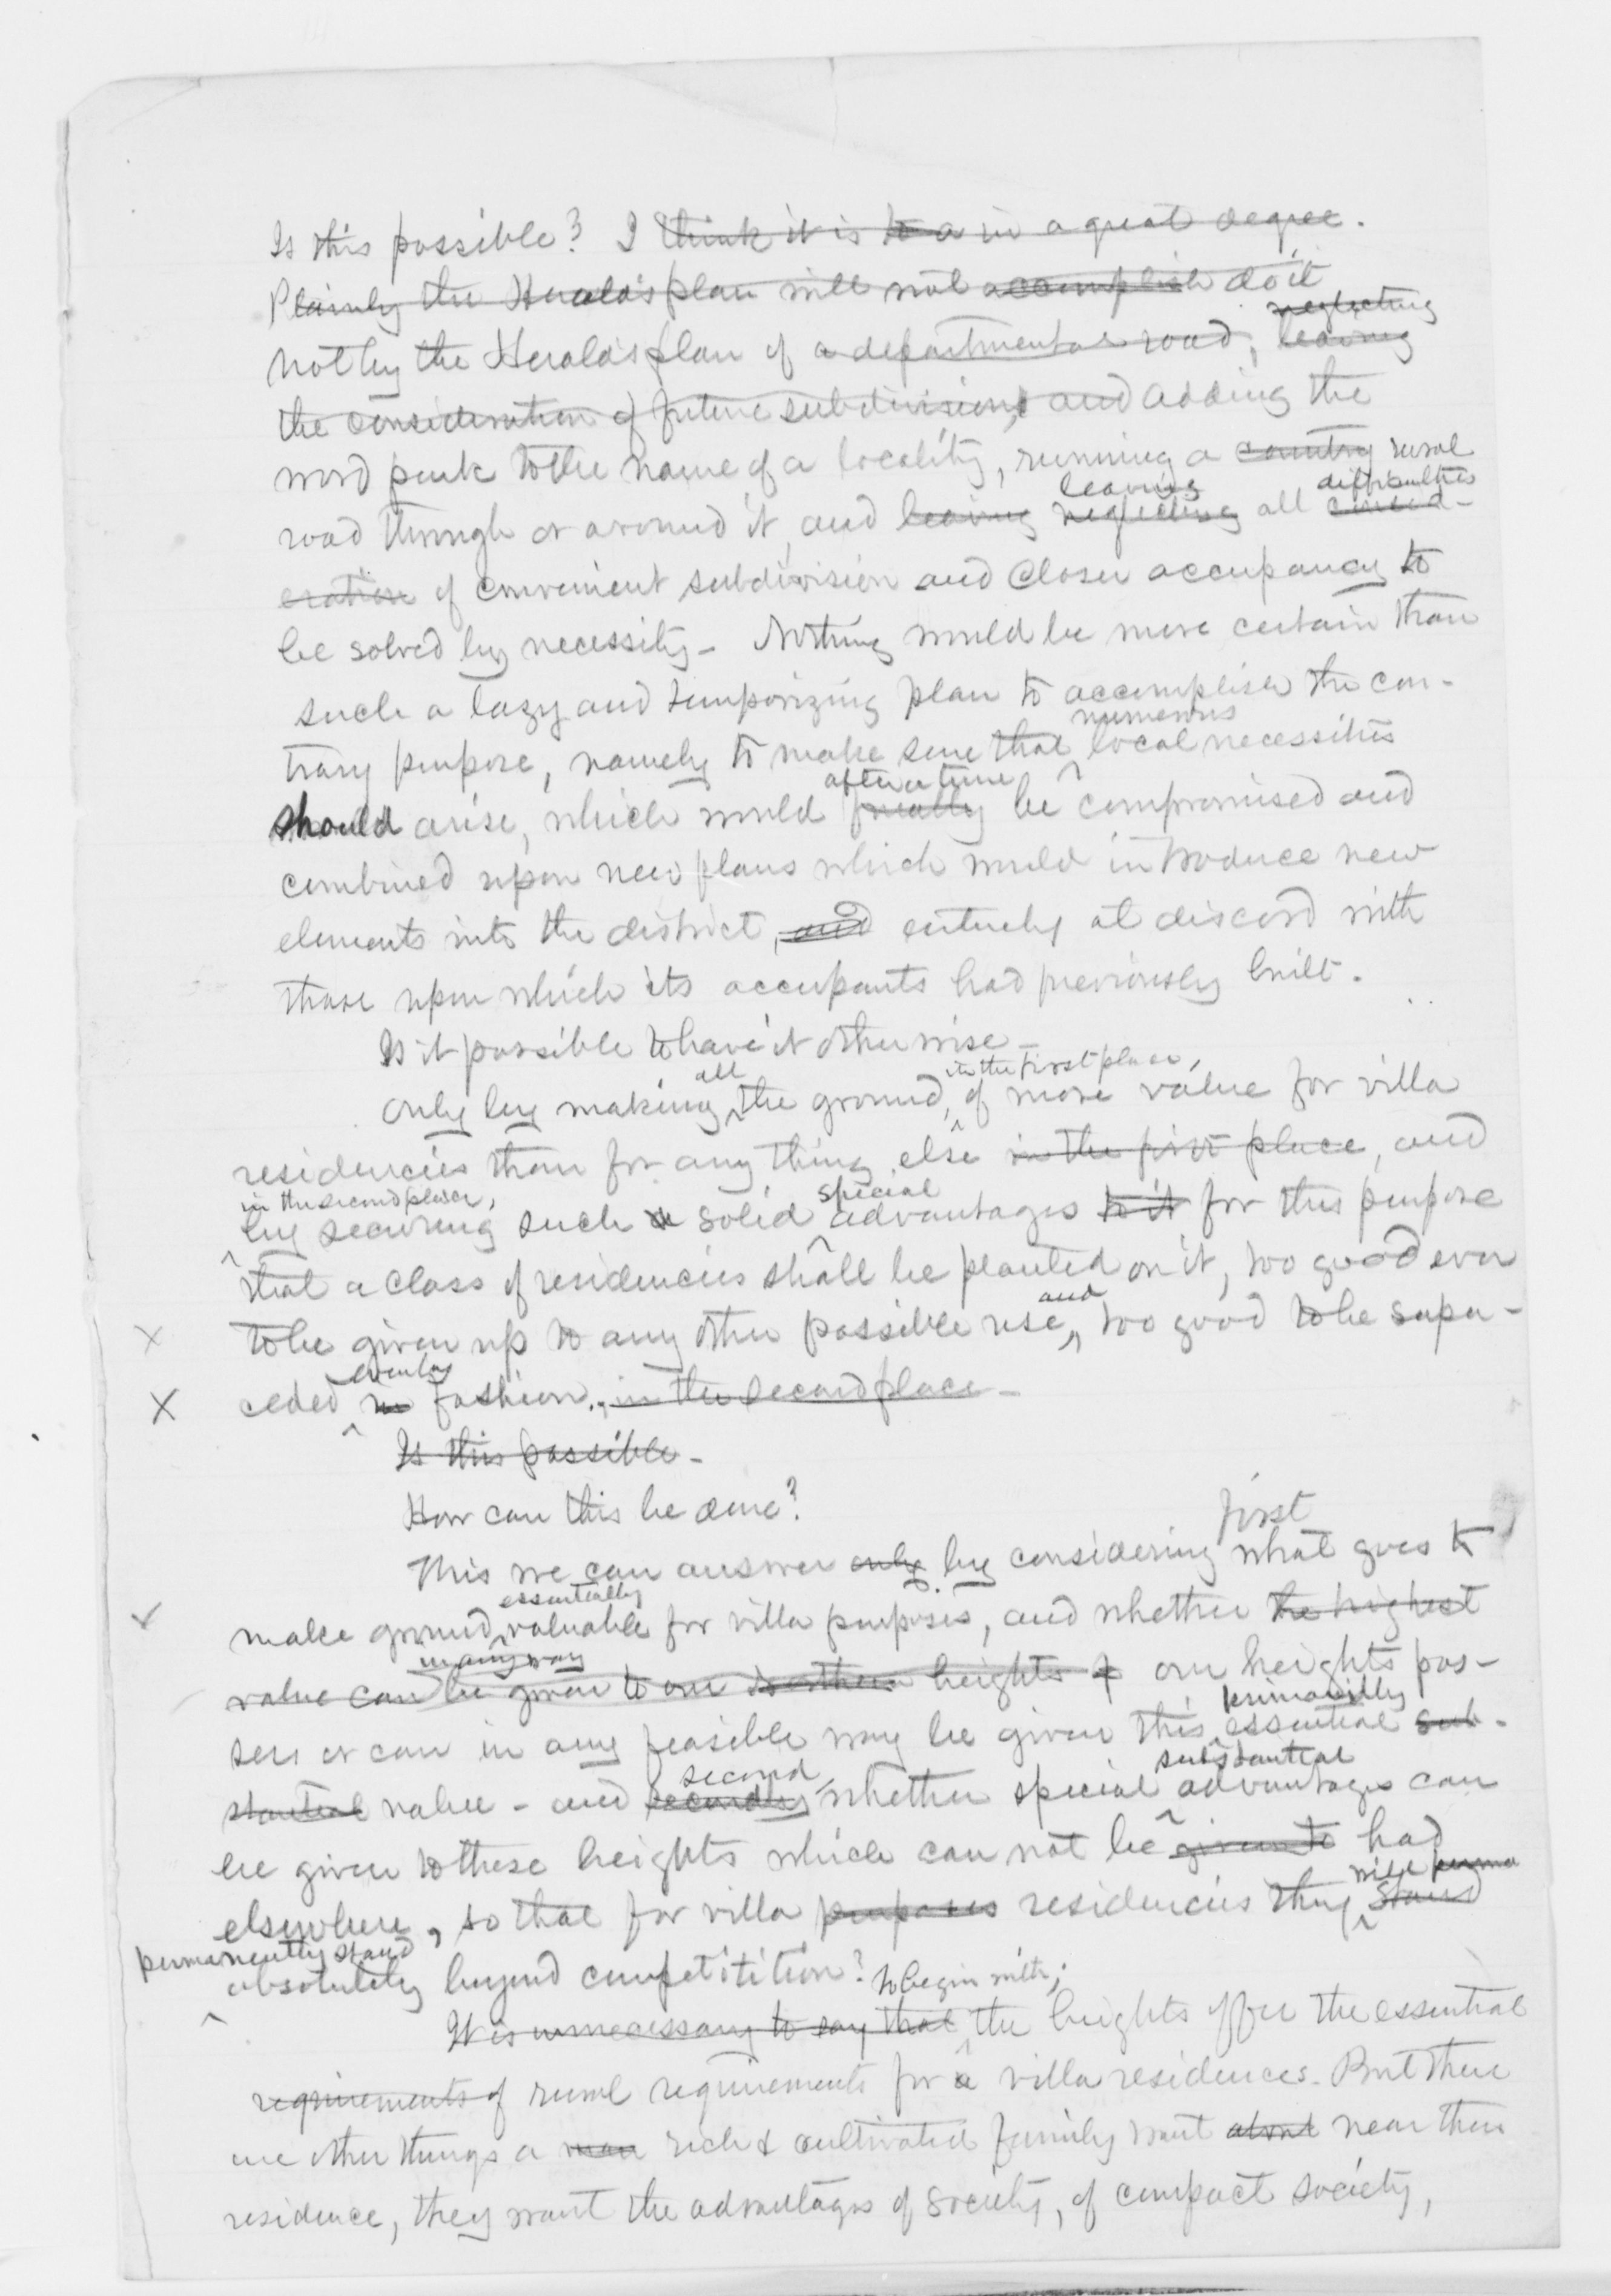 Is this possible? I think it is to a in a great degree.
Plainly the Herald's plan will not accomplish do it
neglecting
Not by the Herald's plan of a departmental road, leaving
the consideration of future subdivisions and adding the
word park to the name of a locality, running a country rural
leaving difficulties
road through or around it, and leaving neglecting all consid-
eration of convenient subdivision and closer occupancy to
be solved by necessity - Nothing would be more certain than
such a lazy and temporizing plan to accomplish the con-
numerous
trary purpose, namely to make sure that local necessities
after a time
should arise, which would finally be compromised and
combined upon new plans which would introduce new
elements into the district, and entirely at discord with
those upon which its occupants had previously built.
Is it possible to have it otherwise -
all in the first place,
Only by making the ground, of more value for villa
residencies than for any thing else in the first place, and
in the second place, special
by securing such a solid advantages to it for this purpose
that a class of residencies shall be planted on it, too good ever
and
to be given up to any other possible use, too good to be supa-
even by
ceded in fashion., in the second place -
Is this possible -
How can this be done?
first
This we can answer only by considering what goes to
essentially
make ground valuable for villa purposes, and whether the highest
in any way
value can be given to our northern heights of our heights pos-
primarily
sess or can in any feasible way be given this essential sub-
second substantial
stantial value - and secondly whether special advantages can
be given to these heights which can not be given to had
will perma
elsewhere, so that for villa purposes residencies they stand
permanently stand
absolutely beyond competitition? to begin with;
It is unnecessary to say that the heights offer the essential
requirements of rural requirements for a villa residences. But there
are other things a man rich & cultivated family want about near their
residence, they want the advantages of society, of compact society,